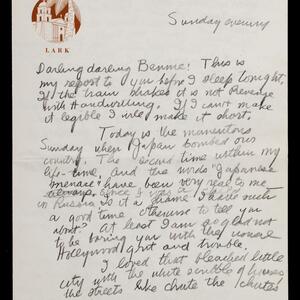 LARK
Sunday evening
Darling darling Bennie! This is
my report to you before I sleep tonight.
If the train shakes it is not Revenge
with Handwriting. If I can't make
it legible I will make it short.
Today is the momentous
Sunday when Japan bombed our
country. The second time within my
life-time, and the words "Japanese
menace" have been very real to me
in Russia. Is it a shame I have such
a good time otherwise to tell you
about? At least I am so glad not
to be boring you with the usual
Hollywood and trouble.
I loved that bleached little
city with the white scribble of houses
the streets like chute the chutes